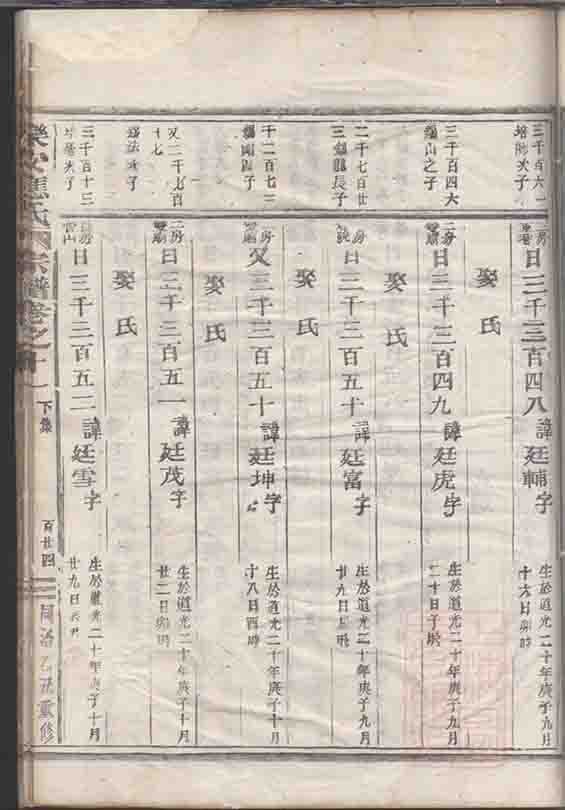 三千百六一
培師次子
二房
日三千三百四八諱廷輔字
生於道光二十年庚子九月
十六日卯時
娶氏
三千百四六
山之子
二房
日三千三百四九諱廷虎字
生於道光二十年庚子九月
二十日子時
娶氏
二千七百廿
三長子
房
日三千三百五十諱廷富字
生於道光二十年庚子九月
廿九日時
娶氏
千二百七三
子
房
又三千三百五十諱廷坤字
生於道光二十年庚子十月
十八日酉時
娶氏
又二千七百
十七
次子
二房
日三千三百五一諱廷茂字
生於道光二十年庚子十月
廿二日卯時
娶氏
三千百十三
次子
房
日三千三百五二諱廷雪字
生於道光二十年庚子十月
廿九日時
樂安氏宗譜卷之十一
下集
百廿四
同治乙丑重修